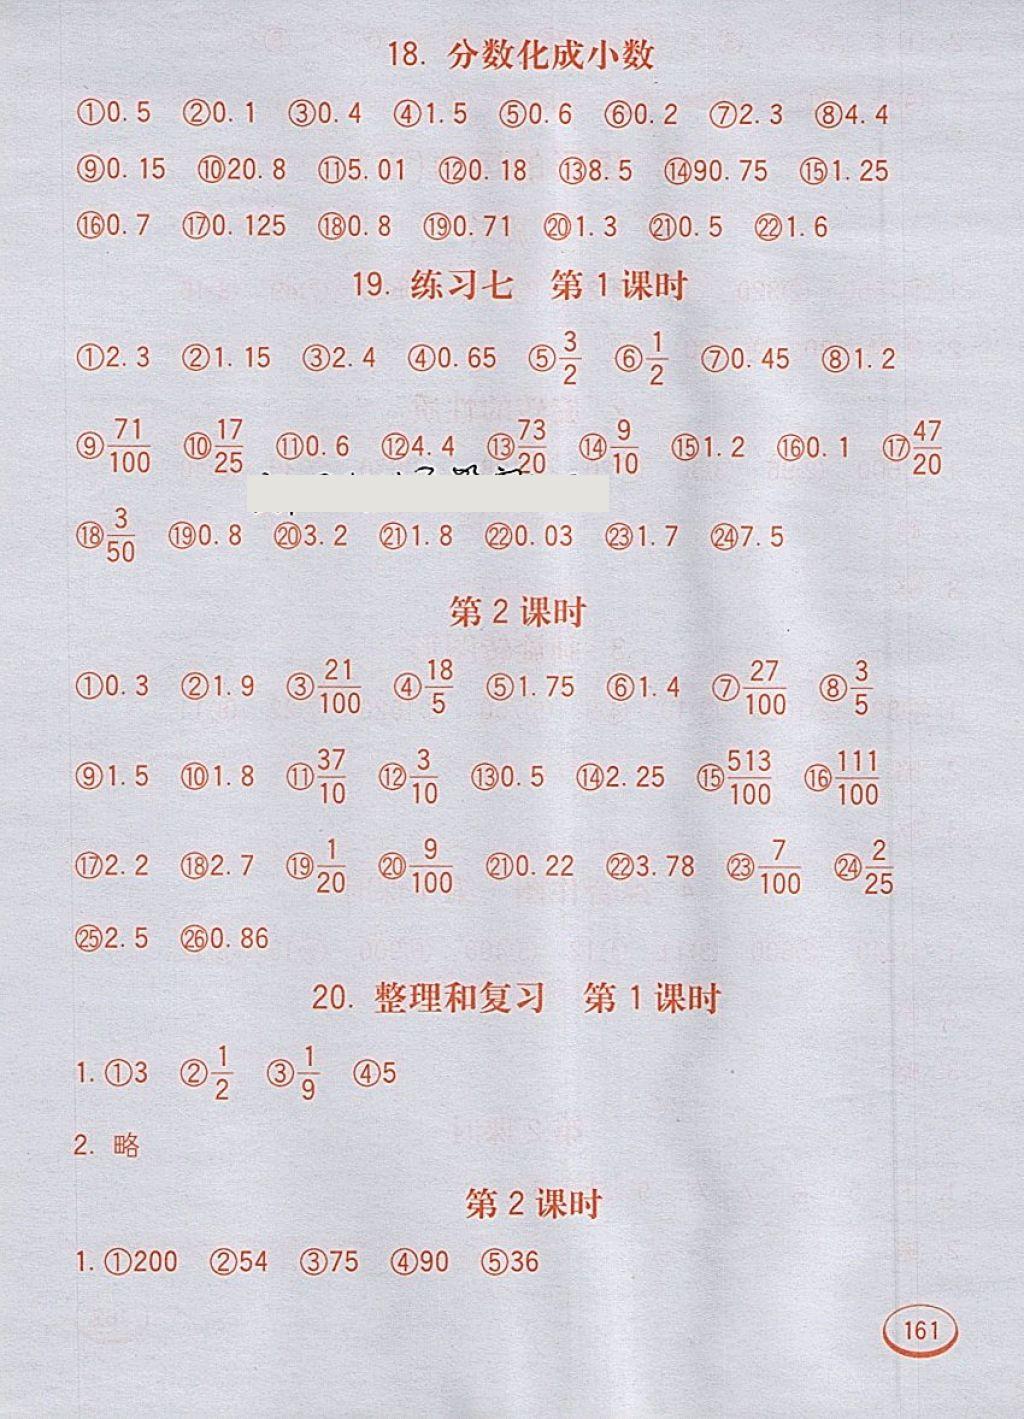 18. 分数化成小数
①0.5 ②0.1 ③0.4 ④1.5 ⑤0.6 ⑥0.2 ⑦2.3 ⑧4.4
⑨0.15 ⑩20.8 ⑪5.01 ⑫0.18 ⑬8.5 ⑭90.75 ⑮1.25
⑯0.7 ⑰0.125 ⑱0.8 ⑲0.71 ⑳1.3 ㉑0.5 ㉒1.6
19. 练习七 第1课时
①2.3 ②1.15 ③2.4 ④0.65 ⑤3/2 ⑥1/2 ⑦0.45 ⑧1.2
⑨71/100 ⑩17/25 ⑪0.6 ⑫4.4 ⑬73/20 ⑭9/10 ⑮1.2 ⑯0.1 ⑰47/20
⑱3/50 ⑲0.8 ⑳3.2 ㉑1.8 ㉒0.03 ㉓1.7 ㉔7.5
第2课时
①0.3 ②1.9 ③21/100 ④18/5 ⑤1.75 ⑥1.4 ⑦27/100 ⑧3/5
⑨1.5 ⑩1.8 ⑪37/10 ⑫3/10 ⑬0.5 ⑭2.25 ⑮513/100 ⑯111/100
⑰2.2 ⑱2.7 ⑲1/20 ⑳9/100 ㉑0.22 ㉒3.78 ㉓7/100 ㉔2/25
㉕2.5 ㉖0.86
20. 整理和复习 第1课时
1. ①3 ②1/2 ③1/9 ④5
2. 略
第2课时
1. ①200 ②54 ③75 ④90 ⑤36
161